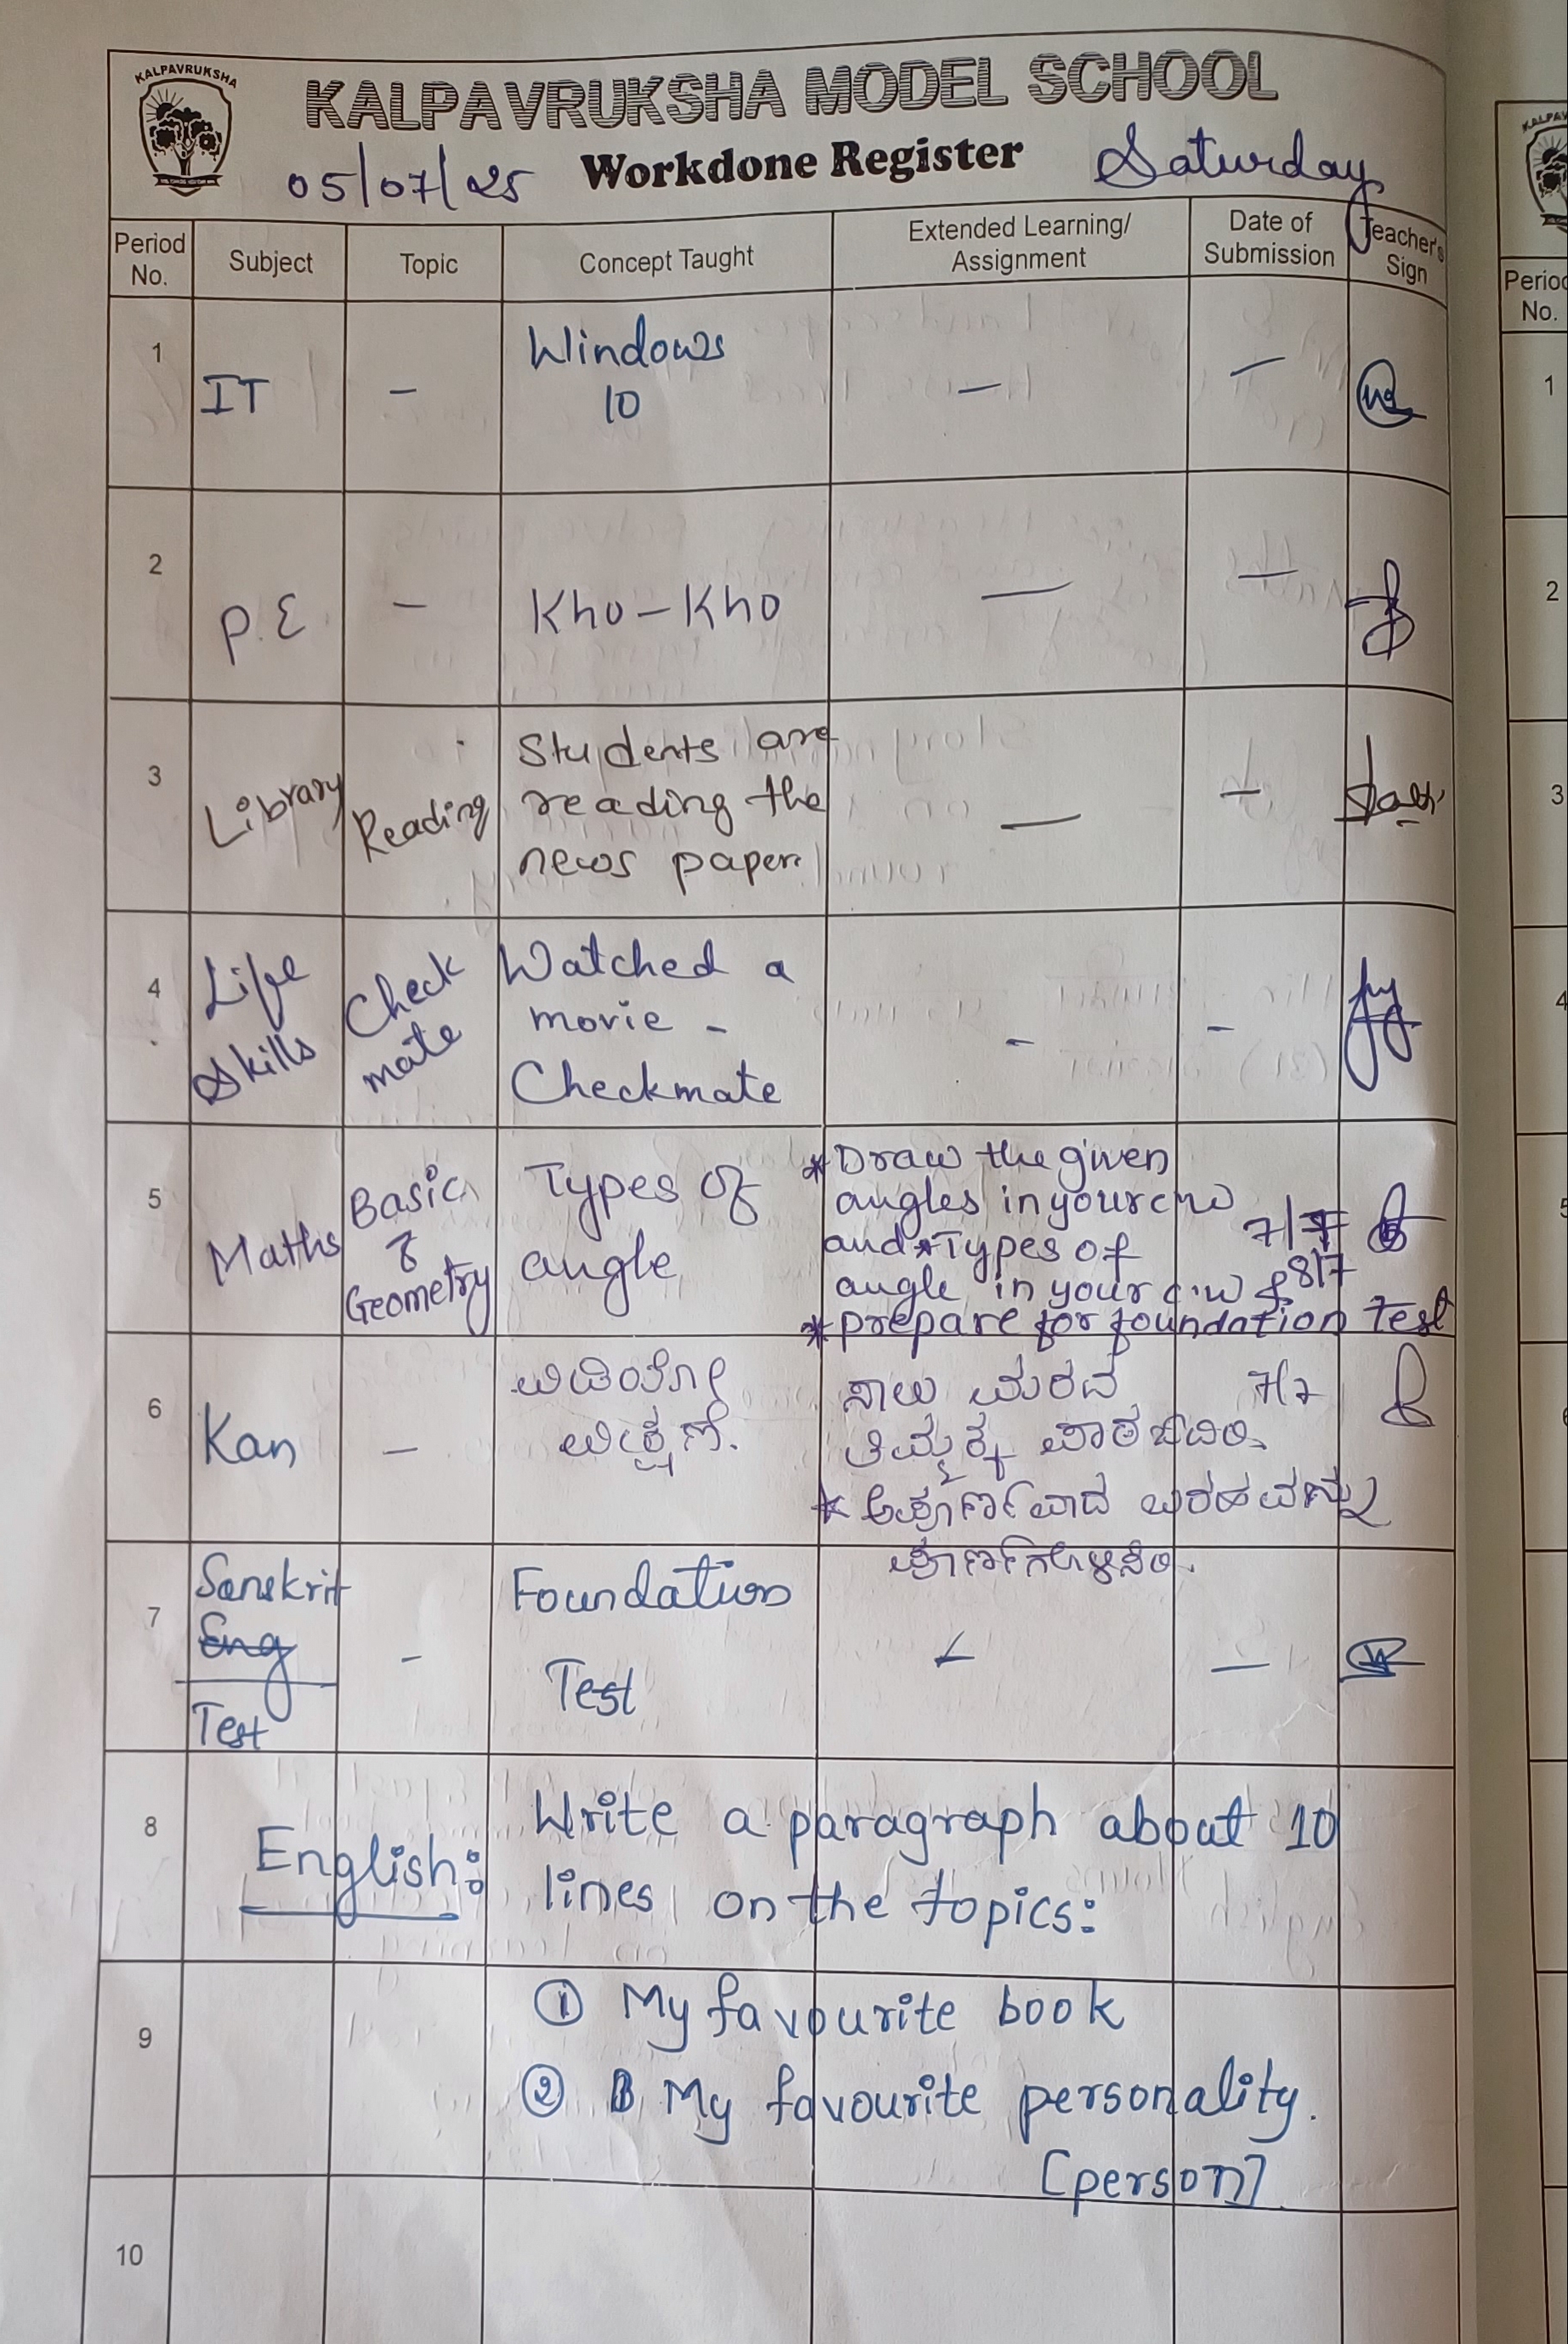 KALPAVRUKSHA
KALPAVRUKSHA MODEL SCHOOL
05/07/25 Workdone Register Saturday
Period No. Subject Topic Concept Taught Extended Learning/ Assignment Date of Submission Teacher's Sign
1 IT - Windows 10 - -
2 P.E - Kho-Kho - -
3 Library Reading Students are
reading the
news paper. - -
4 Life Skills Check mate Watched a
movie -
Checkmate - -
5 Maths Basic Geometry Types of
angle
*Draw the given
angles in your cw 7/7
and *Types of
angle in your c.w & 8/7
*prepare for foundation Test
6 Kan - ವಿಡಿಯೋ
ವೀಕ್ಷಣೆ.
ಸಾಲು ಮರದ 7/7
ತಿಮ್ಮಕ್ಕ ಪಾಠ ಓದಿರಿ.
* ಅಪೂರ್ಣವಾದ ಬರಹವನ್ನು
ಪೂರ್ಣಗೊಳಿಸಿರಿ.
7 Sanskrit
Eng
Test
- Foundation
Test - -
8 English: Write a paragraph about 10
lines on the topics:
9 ① My favourite book
② My favourite personality.
[person]
10
Period No.
1
2
3
4
5